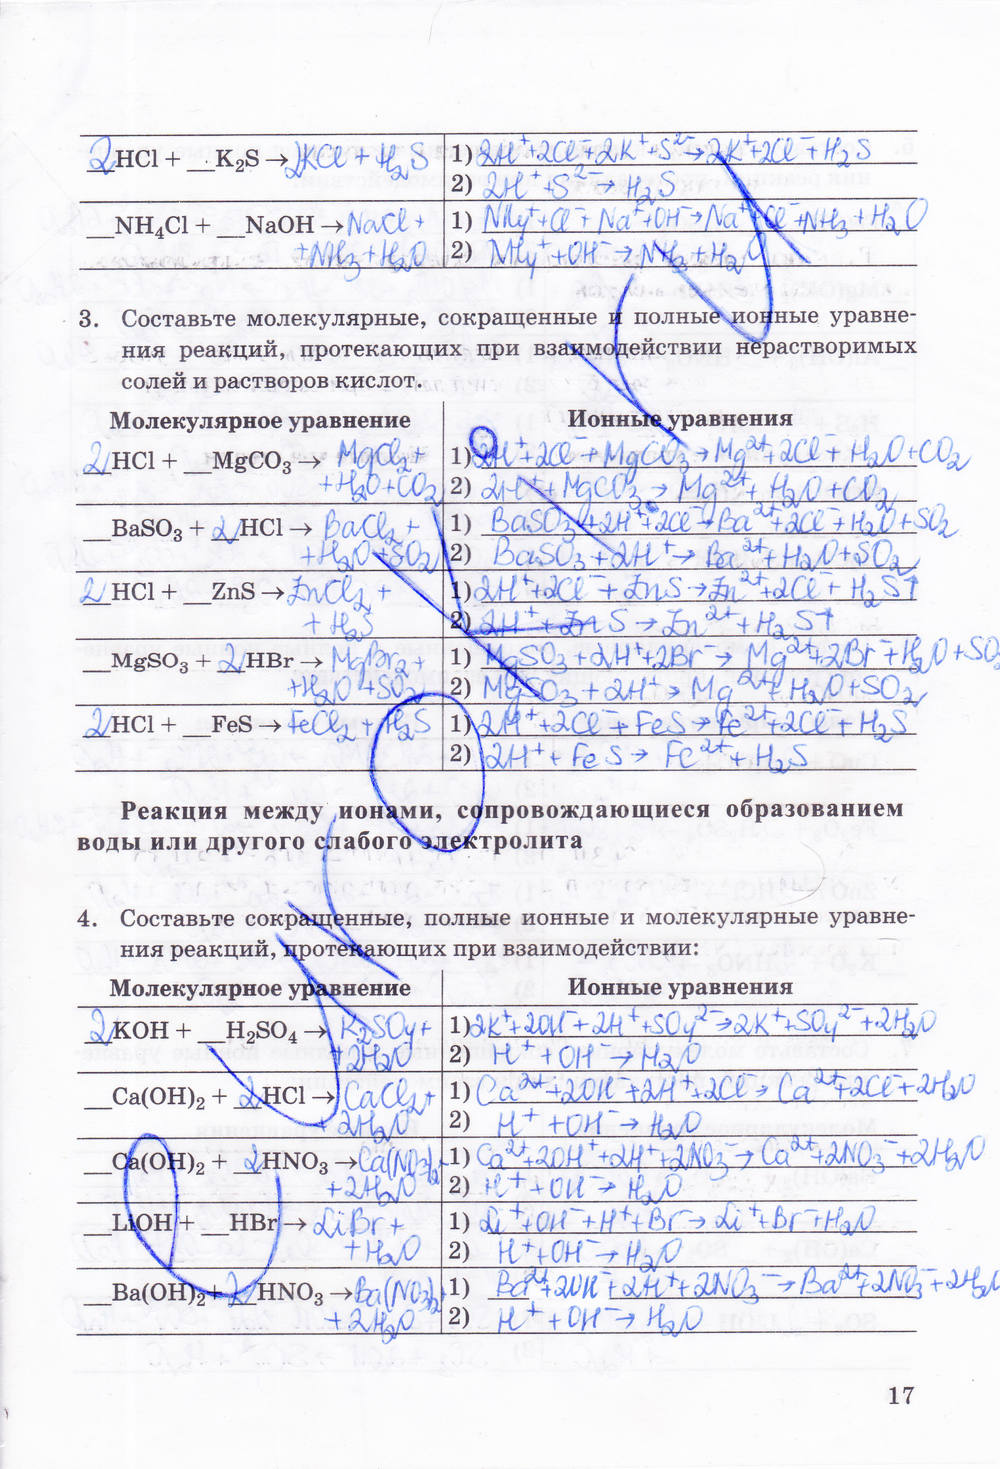 2HCl + __K₂S → 2KCl + H₂S 1) 2H⁺+2Cl⁻+2K⁺+S²⁻→2K⁺+2Cl⁻+H₂S
2) 2H⁺+S²⁻→H₂S
__NH₄Cl + __NaOH → NaCl + 1) NH₄⁺+Cl⁻+Na⁺+OH⁻→Na⁺+Cl⁻+NH₃+H₂O
+NH₃+H₂O 2) NH₄⁺+OH⁻→NH₃+H₂O
3. Составьте молекулярные, сокращенные и полные ионные уравне-
ния реакций, протекающих при взаимодействии нерастворимых
солей и растворов кислот.
Молекулярное уравнение Ионные уравнения
2HCl + __MgCO₃ → MgCl₂+ 1) 2H⁺+2Cl⁻+MgCO₃→Mg²⁺+2Cl⁻+H₂O+CO₂
+H₂O+CO₂ 2) 2H⁺+MgCO₃→Mg²⁺+H₂O+CO₂
__BaSO₃ + 2HCl → BaCl₂+ 1) BaSO₃+2H⁺+2Cl⁻→Ba²⁺+2Cl⁻+H₂O+SO₂
+H₂O+SO₂ 2) BaSO₃+2H⁺→Ba²⁺+H₂O+SO₂
2HCl + __ZnS → ZnCl₂+ 1) 2H⁺+2Cl⁻+ZnS→Zn²⁺+2Cl⁻+H₂S↑
+H₂S 2) 2H⁺+ZnS→Zn²⁺+H₂S↑
__MgSO₃ + 2HBr → MgBr₂+ 1) MgSO₃+2H⁺+2Br⁻→Mg²⁺+2Br⁻+H₂O+SO₂
+H₂O+SO₂ 2) MgSO₃+2H⁺→Mg²⁺+H₂O+SO₂
2HCl + __FeS → FeCl₂+H₂S 1) 2H⁺+2Cl⁻+FeS→Fe²⁺+2Cl⁻+H₂S
2) 2H⁺+FeS→Fe²⁺+H₂S
Реакция между ионами, сопровождающиеся образованием
воды или другого слабого электролита
4. Составьте сокращенные, полные ионные и молекулярные уравне-
ния реакций, протекающих при взаимодействии:
Молекулярное уравнение Ионные уравнения
2KOH + __H₂SO₄ → K₂SO₄+ 1) 2K⁺+2OH⁻+2H⁺+SO₄²⁻→2K⁺+SO₄²⁻+2H₂O
+2H₂O 2) H⁺+OH⁻→H₂O
__Ca(OH)₂ + 2HCl → CaCl₂+ 1) Ca²⁺+2OH⁻+2H⁺+2Cl⁻→Ca²⁺+2Cl⁻+2H₂O
+2H₂O 2) H⁺+OH⁻→H₂O
__Ca(OH)₂ + 2HNO₃ → Ca(NO₃)₂+ 1) Ca²⁺+2OH⁻+2H⁺+2NO₃⁻→Ca²⁺+2NO₃⁻+2H₂O
+2H₂O 2) H⁺+OH⁻→H₂O
__LiOH + __HBr → LiBr+ 1) Li⁺+OH⁻+H⁺+Br⁻→Li⁺+Br⁻+H₂O
+H₂O 2) H⁺+OH⁻→H₂O
__Ba(OH)₂ + 2HNO₃ → Ba(NO₃)₂+ 1) Ba²⁺+2OH⁻+2H⁺+2NO₃⁻→Ba²⁺+2NO₃⁻+2H₂O
+2H₂O 2) H⁺+OH⁻→H₂O
17